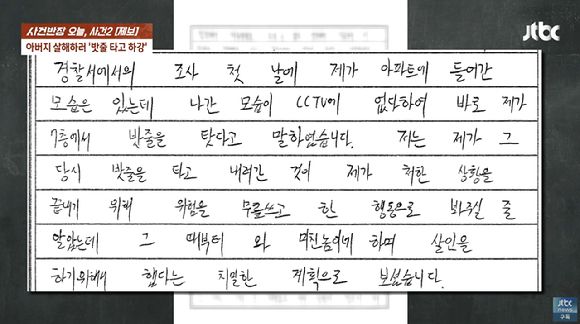 사건반장 오늘, 사건2 [제보]
아버지 살해하려 '밧줄 타고 하강'
jtbc
경찰서에서의 조사 첫 날에 제가 아파트에 들어간
모습은 있는데 나간 모습이 CCTV에 없다하여 바로 제가
7층에서 밧줄을 탓다고 말하였습니다. 저는 제가 그
당시 밧줄을 타고 내려간 것이 제가 처한 상황을
끝내기 위해 위험을 무릅쓰고 한 행동으로 봐주실 줄
알았는데 그 때부터 와 미친놈이네 하며 살인을
하기위해서 했다는 치밀한 계획으로 보셨습니다.
jtbc
news
구독